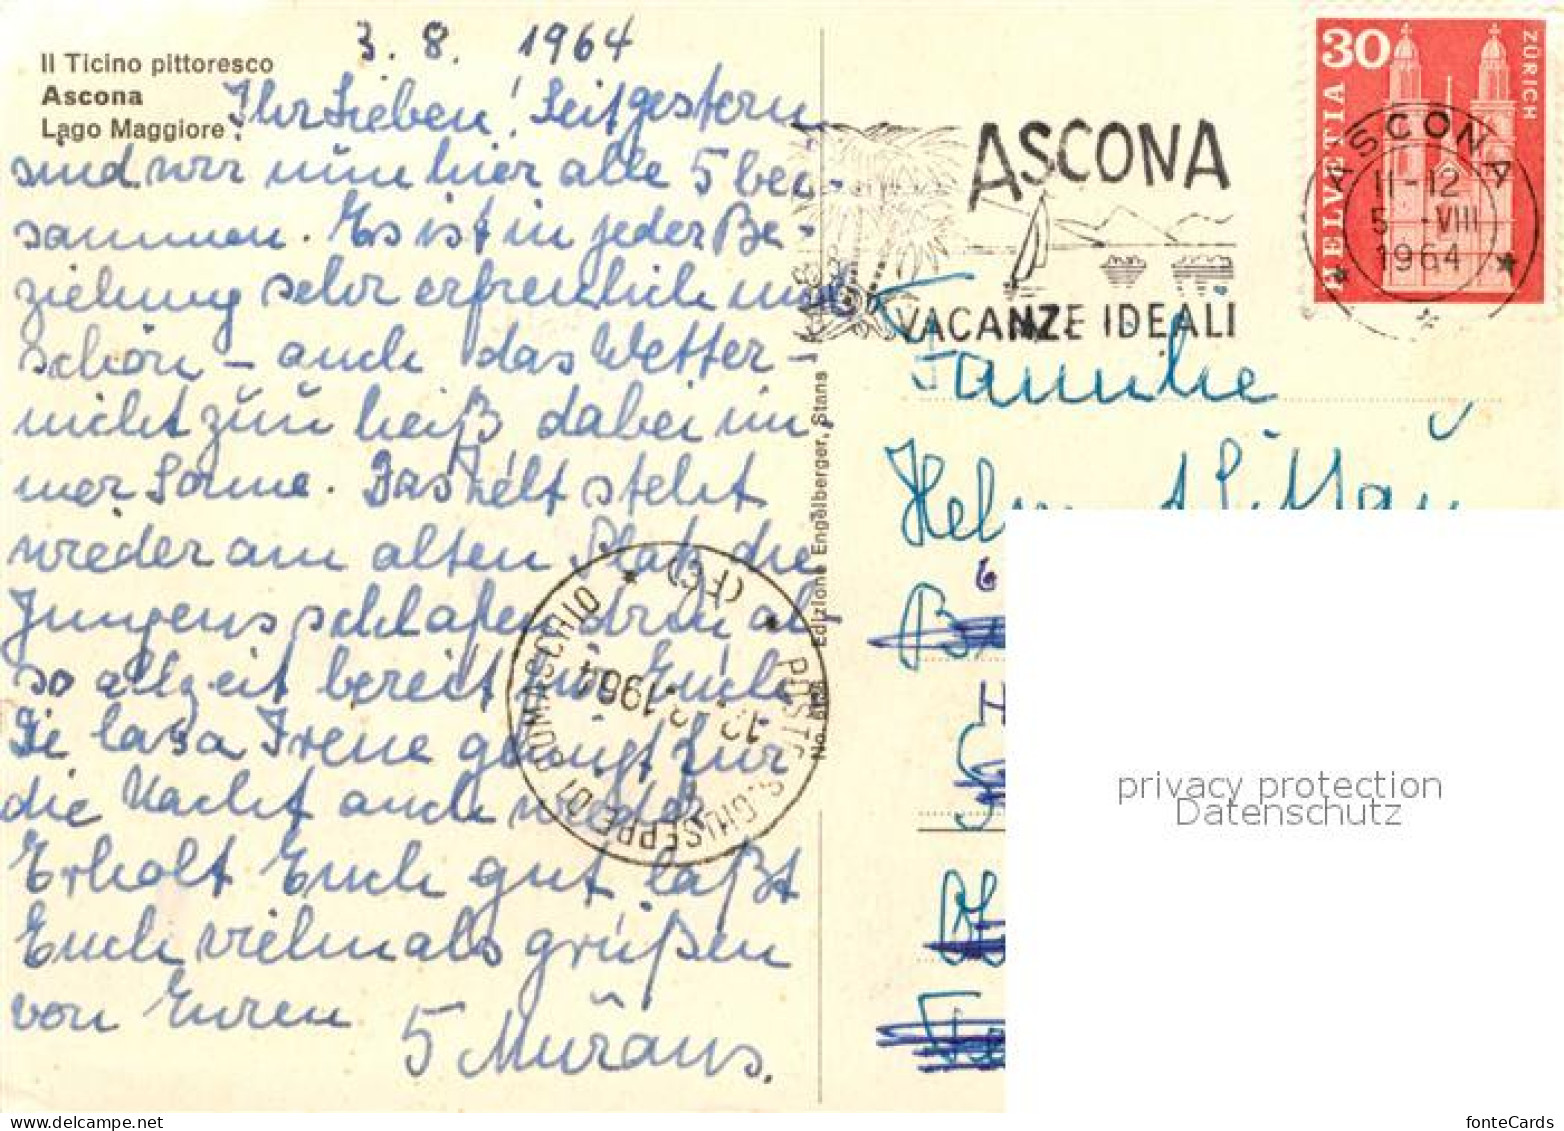 3. 8. 1964
Il Ticino pittoresco
Ascona
Lago Maggiore
Ihr Lieben! Seit gestern
sind wir nun hier alle 5 bei-
sammen. Es ist in jeder Be-
ziehung sehr erfreulich und
schön – auch das Wetter –
nicht zu heiß dabei im
mer Sonne. Das Zelt steht
wieder am alten Platz, die
Jungens schlafen drin, al
so allzeit bereit für Euch.
Die Casa Irene genügt zur
die Nacht auch wieder
Erholt Euch gut, laßt
Euch vielmals grüßen
von Euren
5 Muraus.
Edizione Engelberger, Stans
No.
POSTE S. GIUSEPPE DI COMASCHIO (FE)
1964
ASCONA
VACANZE IDEALI
30
HELVETIA
ZÜRICH
ASCONA
11-12
5.-VIII
1964
Familie
privacy protection
Datenschutz
delcampe.net
fonteCards